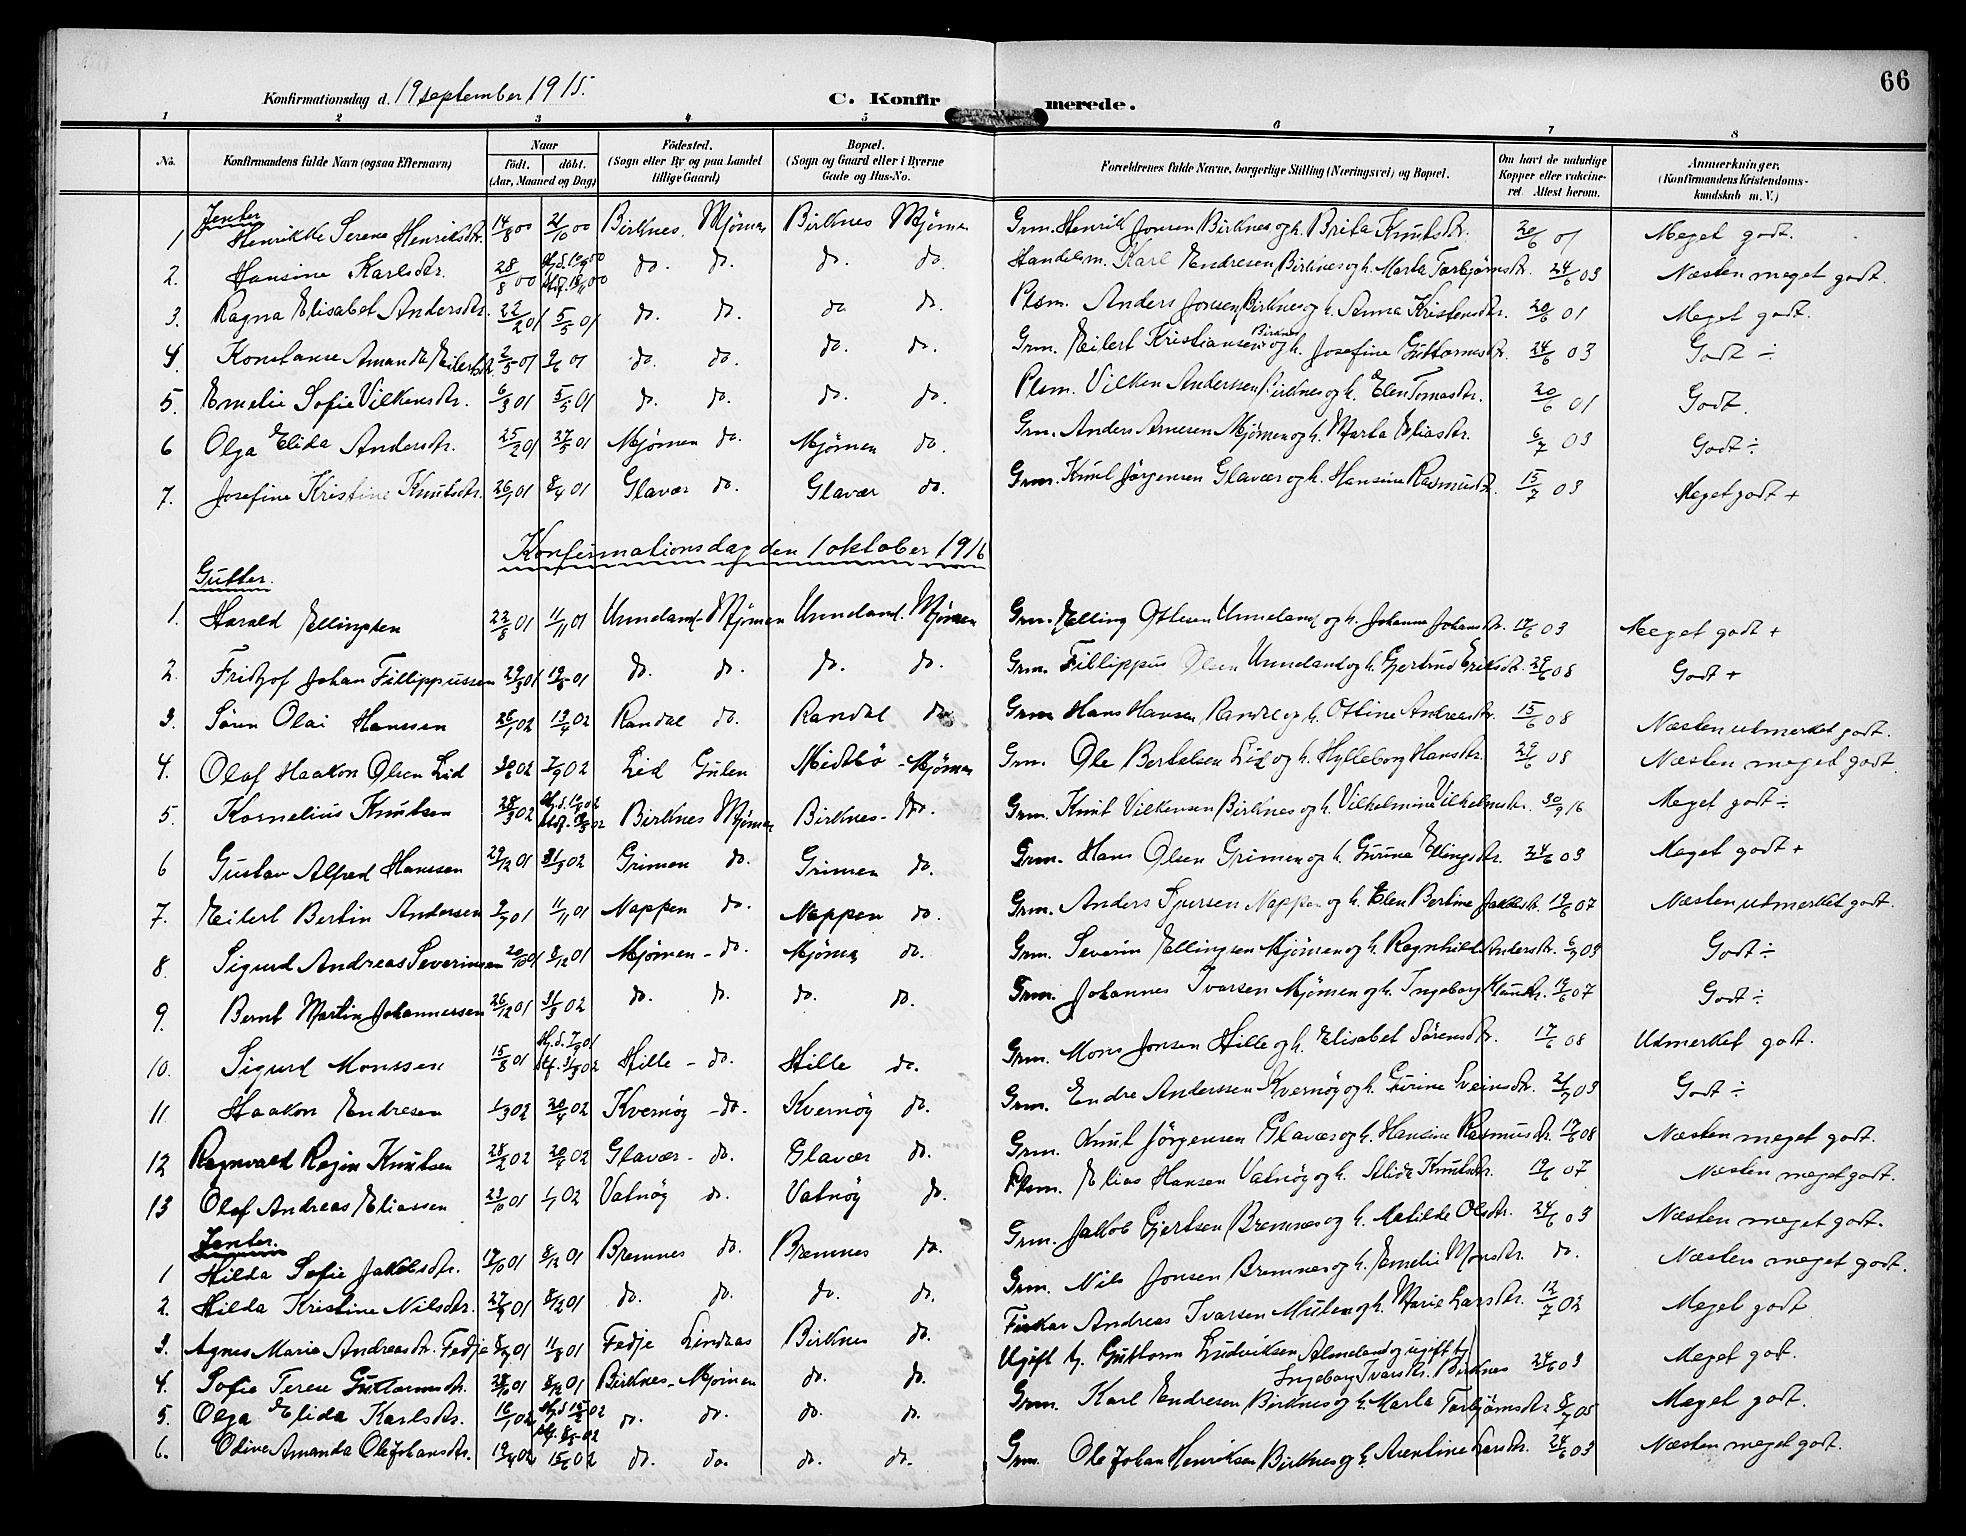 66
Konfirmationsdag d. 19 september 1915.
C. Konfirmerede.
1 2 3 4 5 6 7 8
No. Konfirmandens fulde Navn (ogsaa Efternavn) Naar født. døbt. (Aar, Maaned og Dag) Fødested. (Sogn eller By og paa Landet tillige Gaard) Bopæl. (Sogn og Gaard eller i Byerne Gade og Hus-No. Forældrenes fulde Navne, borgerlige Stilling (Næringsvei) og Bopæl. Om havt de naturlige Kopper eller vakcineret. Attest herom. Anmærkninger, (Konfirmandens Kristendomskundskab m. V.)
Jenter
1 Henrikke Serene Henriksdtr. 14/8 00 21/10 00 Birknes, Mjømen Birknes Mjømen Grm. Henrik Jonsen Birknes og h. Brita Knutsdtr. 20/6 01 Meget godt.
2. Hansine Karlsdtr. 28/8 00 Birknes do. do. do. do. Handelsm. Karl Endresen, Birknes og h. Marta Torbjørnsdtr. 24/6 03 Næsten meget godt.
3. Ragna Elisabet Andersdtr. 22/2 01 5/5 01 do. do. do do. Plsm. Anders Jonsen, Birknes og h. Anna Kristensdtr. 20/6 01 Meget godt.
4. Konstanse Amanda Eilertsdtr. 2/5 01 2/6 01 do. do. do. do. Grm. Eilert Kristiansen Birknes og h. Josefine Guttormsdtr. 24/6 03 Godt ÷
5. Emelie Sofie Vilkensdtr. 6/3 01 5/5 01 do. do. do. do. Plsm. Vilken Anderssen, Birknes og h. Elen Tomasdtr. 20/6 01 Godt.
6 Olga Elida Andersdtr. 25/2 01 27/5 01 Mjømen do. Mjømen do. Grm. Anders Arnesen Mjømen og h. Marta Eliasdtr. 6/7 03 Godt ÷
7. Josefine Kristine Knutsdtr. 26/1 01 8/4 01 Glavær do. Glavær do. Grm. Knut Jørgensen Glavær og h. Hansine Rasmusdtr. 15/7 03 Meget godt +
Konfirmationsdag den 1 oktober 1916
Gutter.
1. Harald Ellingsen 22/8 01 11/11 01 Unneland Mjømen Unneland. Mjømen Grm. Elling Ottesen Unneland og h. Johanne Johansdtr. 17/6 03 Meget godt +
2. Fridtjof Johan Fillippussen 29/3 01 do. do. do. do. Grm. Fillippus Olsen Unneland og h. Gjertrud Eriksdtr. 29/6 08 Godt +
3. Søren Olai Hanssen 28/1 02 13/4 02 Randal do. Randal do Grm Hans Hansen, Randal og h. Ottine Andreasdtr. 15/6 08 Næsten utmerket godt.
4. Olaf Haakon Olsen Lid 02 7/9 02 Lid Gulen Midtbø - Mjømen Grm. Ole Bertelsen Lid og h. Hylleborg Hansdtr. 29/6 08 Næsten meget godt.
5. Kornelius Knutsen 28/3 02 Birknes Mjømen Birknes - do. Grm. Knut Vilkensen Birknes og h. Vilhelmine Vilhelmsdtr. 30/9 16 Meget godt ÷
6 Gustav Alfred Hanssen 29/12 01 31/3 02 Grimen do. Grimen do. Grm. Hans Olsen Grimen og h. Gurine Elingsdtr. 24/6 03 Meget godt +
7. Eilert Bertin Andersen 9/9 01 11/11 01 Nappen do. Nappen do. Grm. Anders Sjursen Nappen og h. Elen Bertine 19/6 07 Næsten utmerket godt.
8. Sigurd Andreas Severinsen 20/10 01 8/12 01 Mjømen - do. Mjømen do. Grm. Severin Ellingsen Mjømen og h. Ragnhild Andersdtr. 03 Godt ÷
9. Bernt Martin Johannessen 26/12 01 31/3 02 do. do. do. do. Grm. Johannes Ivarsen Mjømen og h. Ingeborg 19/6 07 Godt ÷
10. Sigurd Monssen 15/8 01 Hj.d. 7/9 01 st.f. 31/3 02 Hille - do. Hille do. Grm. Mons Jonsen Hille og h. Elisabet Sørensdtr. 17/6 08 Udmerket godt.
11 Haakon Endresen 1/3 02 20/4 02 Kvernøy - do. Kvernøy do. Grm. Endre Anderssen Kvernøy og h. Gurine Sveinsdtr. 03 Godt ÷
12 Ragnvald Regin Knutsen 28/2 02 20/4 02 Glavær - do. Glavær do. Grm. Knut Jørgensen Glavær og h. Hansine Rasmusdtr. 17/6 08 Næsten meget godt.
13 Olaf Andreas Eliassen 23/10 01 1/1 02 Vatnøy do. Vatnøy do. Plsm. Elias Hansen Vatnøy og h. Knutsdtr. 19/6 07 Næsten meget godt.
Jenter.
1 Hilda Sofie Jakobsdtr. 17/10 01 8/12 01 Bremnes do. Bremnes do. Grm. Jakob Gjertsen Bremnes og h. Matilde Olsdtr. 24/6 03 Næsten meget godt.
2. Hilda Kristine Nilsdtr. 27/9 01 8/12 01 do. do. do. do. Grm. Nils Jonsen Bremnes og h. Emelie Monsdtr. do. Næsten meget godt.
3. Agnes Marie Andreasdtr. Fedje 8/7 01 11/8 01 Fedje Lindaas Birknes do. Fisker Andreas Ivarsen Multen og h. Marie Larsdtr. 12/7 02 Meget godt
4. Sofie Terese Guttormsdtr. 28/10 01 8/12 01 Birknes - Mjømen do. do. Ugift Guttorm Ludviksen Almeland og ugift Ingeborg Ivarsdtr. Birknes 24/6 03 Meget godt.
5. Olga Elida Karlsdtr. 16/1 02 do. do. do. do. Grm. Karl Endresen Birknes og h. Marta Torbjørnsdtr 8/7 05 Meget godt.
6. Odine Amanda Ole Johansdtr. 19/4 02 15/6 02 do. do. do. do. Grm. Ole Johan Henriksen Birknes og h. Arentine Larsdtr. 24/6 03 Næsten meget godt.